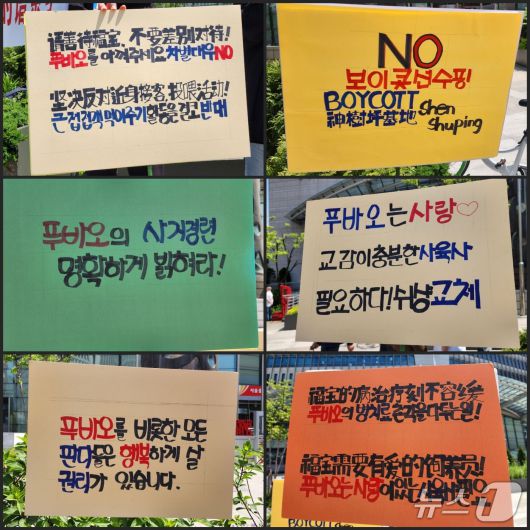 请善待福宝, 不要差别对待!
푸바오를 아껴주세요 차별대우NO
坚决反对近身接客, 投喂活动!
근접접객, 먹이주기활동을 결코 반대
NO
보이콧선수핑!
BOYCOTT Shen
神樹坪基地 Shuping
푸바오의 사지경련
명확하게 밝혀라!
푸바오는 사랑♡
교감이충분한사육사
필요하다! 쉬샹교체
푸바오를 비롯한 모든
판다들은 행복하게 살
권리가 있습니다.
福宝的病治疗刻不容缓
푸바오의
福宝需要有爱的饲养员!
푸바오는 사랑이있는사육사필요
BOYCOTT
뉴스1